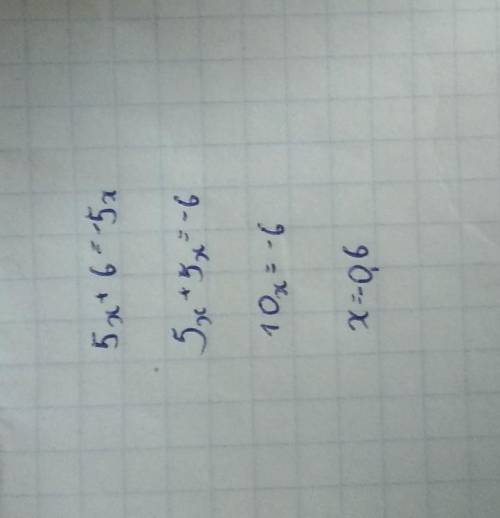 5x + 6 = -5x
5x + 5x = -6
10x = -6
x = -0,6